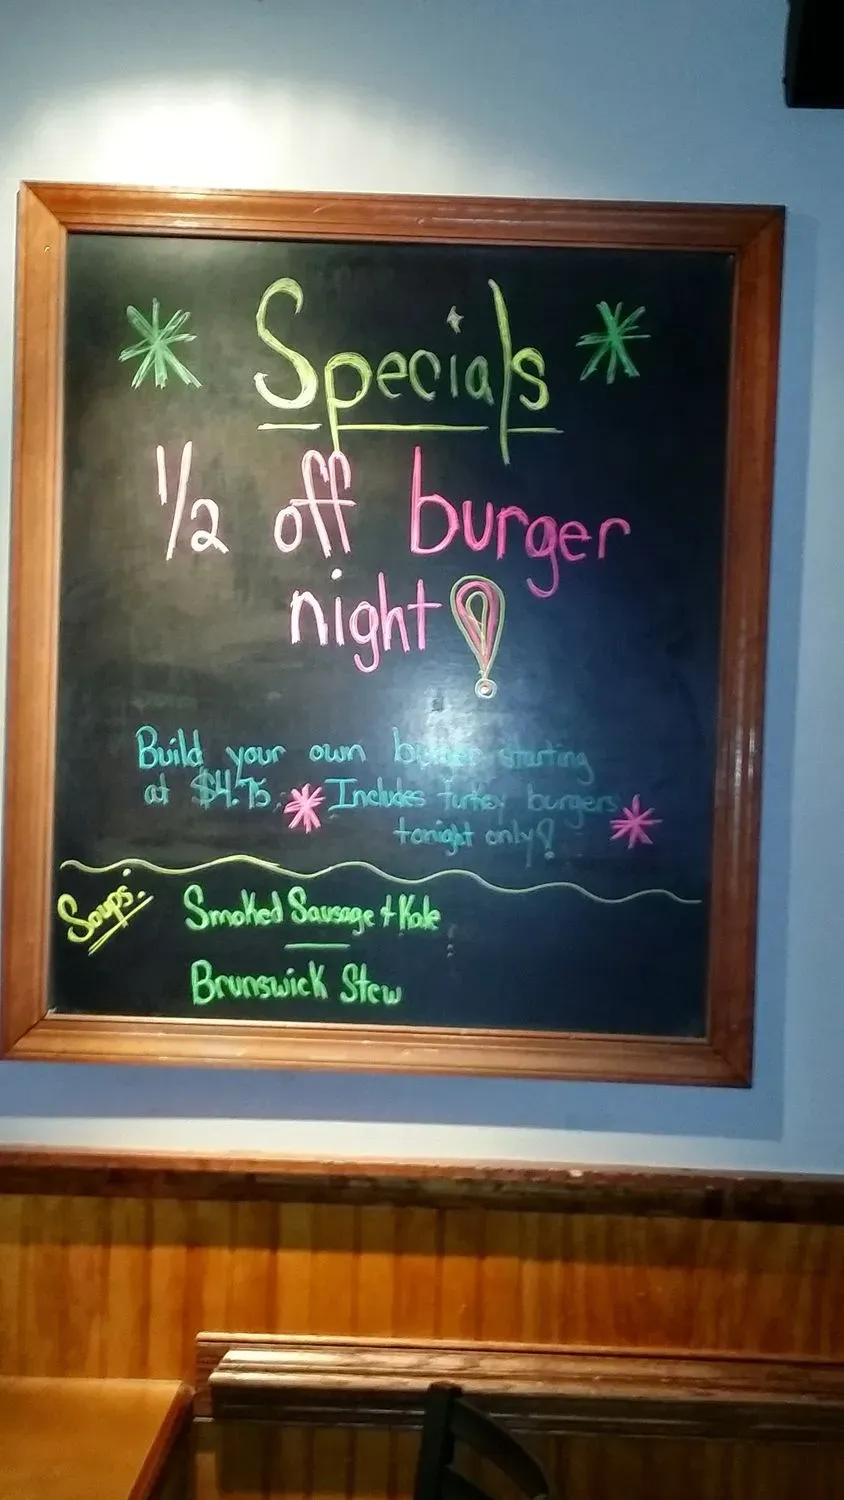 Specials
1/2 off burger
night!
Build your own burger starting
at $4.75. Includes turkey burgers
tonight only!
Soups: Smoked Sausage + Kale
Brunswick Stew